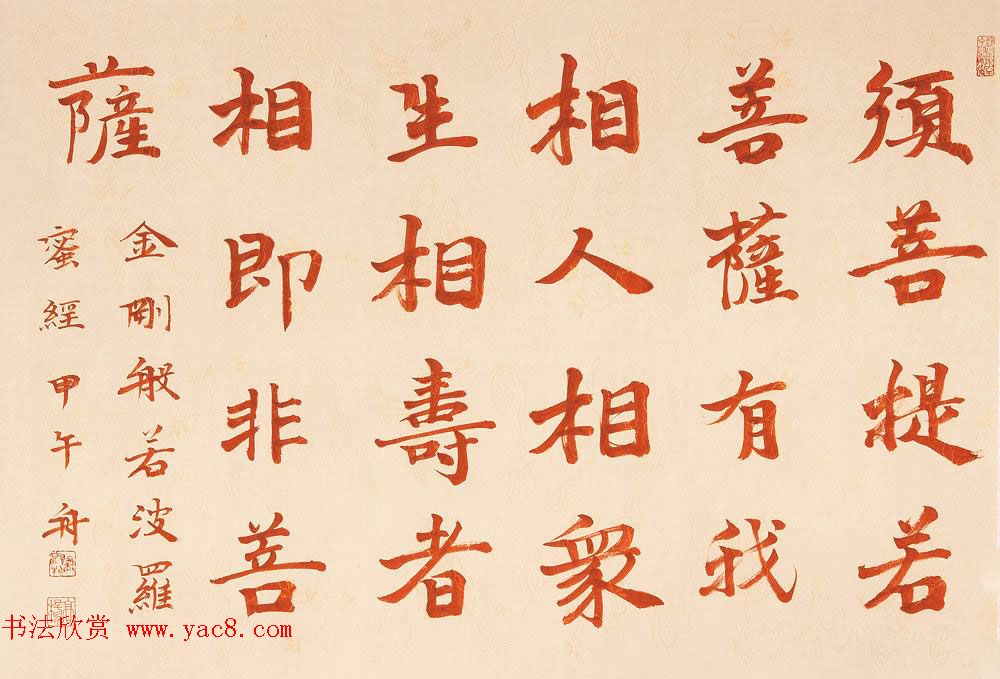 須菩提若
菩薩有我
相人相衆
生相壽者
相即非菩
薩
金剛般若波羅
蜜經甲午舟
书法欣赏 www.yac8.com